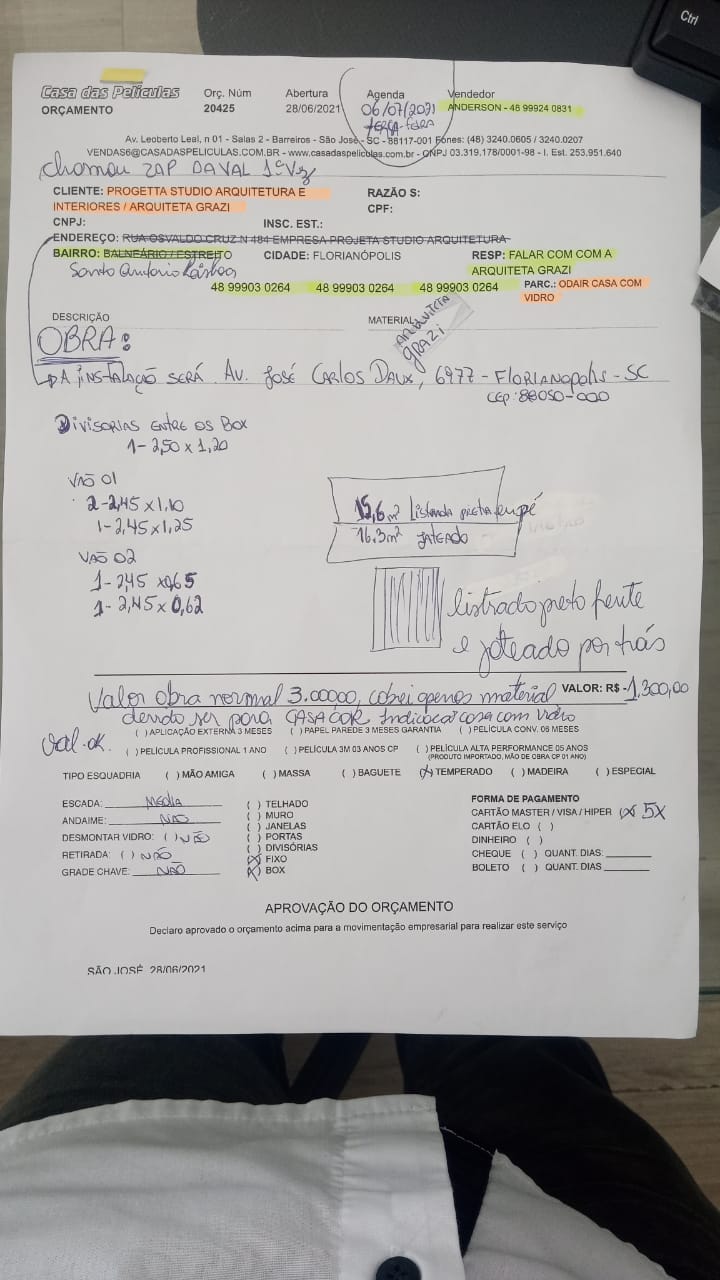 Ctrl
Casa das Películas
ORÇAMENTO
Orç. Núm
20425
Abertura
28/06/2021
Agenda
06/07/2021
terça-feira
Vendedor
ANDERSON - 48 99924 0831
Av. Leoberto Leal, n 01 - Salas 2 - Barreiros - São José - SC - 88117-001 Fones: (48) 3240.0605 / 3240.0207
VENDAS6@CASADASPELICULAS.COM.BR - www.casadaspeliculas.com.br - CNPJ 03.319.178/0001-98 - I. Est. 253.951.640
chamou ZAP DAVAL 1ª Vz
CLIENTE: PROGETTA STUDIO ARQUITETURA E
INTERIORES / ARQUITETA GRAZI
RAZÃO S:
CPF:
CNPJ:
INSC. EST.:
ENDEREÇO: RUA OSVALDO CRUZ N 484 EMPRESA PROJETA STUDIO ARQUITETURA
BAIRRO: BALNEÁRIO / ESTREITO
CIDADE: FLORIANÓPOLIS
RESP: FALAR COM COM A
ARQUITETA GRAZI
Santo Antônio Lisboa
48 99903 0264 48 99903 0264 48 99903 0264
PARC.: ODAIR CASA COM
VIDRO
DESCRIÇÃO
MATERIAL
ARQUITETA
GRAZI
OBRA:
A INSTALAÇÃO SERÁ. AV. JOSÉ CARLOS DAUX, 6977 - FLORIANOPOLIS - SC
CEP: 88050-000
DIVISORIAS ENTRE OS BOX
1- 2,50 x 1,20
VÃO 01
2- 2,45 x 1,10
1- 2,45 x 1,25
VAÕ 02
1- 2,45 x 0,65
1- 2,45 x 0,62
15,6m² Listrada preta em pé
16,3m² JATEADO
listrado preto frente
e jateado por trás
Valor obra normal 3.000,00, cobrei apenas material
VALOR: R$ -1,300,00
devido ser para CASA COR Indicação casa com vidro
Val. ok.
( ) APLICAÇÃO EXTERNA 3 MESES ( ) PAPEL PAREDE 3 MESES GARANTIA ( ) PELÍCULA CONV. 06 MESES
( ) PELÍCULA PROFISSIONAL 1 ANO ( ) PELÍCULA 3M 03 ANOS CP ( ) PELÍCULA ALTA PERFORMANCE 05 ANOS
(PRODUTO IMPORTADO, MÃO DE OBRA CP 01 ANO)
TIPO ESQUADRIA ( ) MÃO AMIGA ( ) MASSA ( ) BAGUETE (X) TEMPERADO ( ) MADEIRA ( ) ESPECIAL
ESCADA: MEDIA
ANDAIME: NÃO
DESMONTAR VIDRO: ( ) NÃO
RETIRADA: ( ) NÃO
GRADE CHAVE: NÃO
( ) TELHADO
( ) MURO
( ) JANELAS
( ) PORTAS
( ) DIVISÓRIAS
(X) FIXO
(X) BOX
FORMA DE PAGAMENTO
CARTÃO MASTER / VISA / HIPER (X) 5X
CARTÃO ELO ( )
DINHEIRO ( )
CHEQUE ( ) QUANT. DIAS:
BOLETO ( ) QUANT. DIAS
APROVAÇÃO DO ORÇAMENTO
Declaro aprovado o orçamento acima para a movimentação empresarial para realizar este serviço
SÃO JOSÉ 28/06/2021